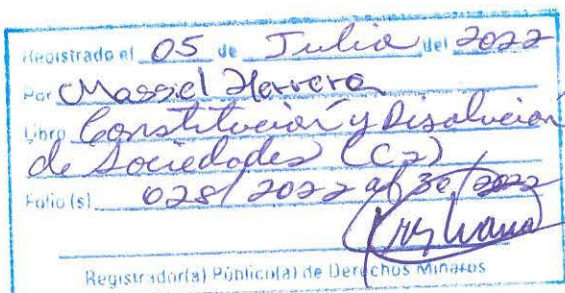 Registrado el 05 de Julio del 2022
Por Massiel Herrera
Libro Constitución y Disolución
de Sociedades (C2)
Folio (s) 028/2022 al 30/2022
Registrador(a) Público(a) de Derechos Mineros